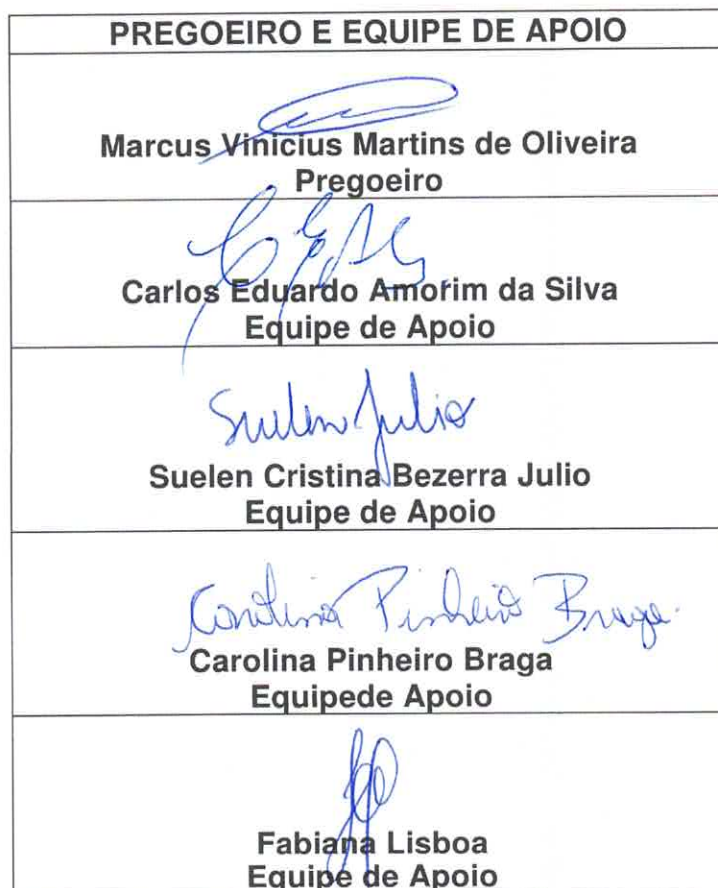 PREGOEIRO E EQUIPE DE APOIO
Marcus Vinicius Martins de Oliveira
Pregoeiro
Carlos Eduardo Amorim da Silva
Equipe de Apoio
Suelen Julio
Suelen Cristina Bezerra Julio
Equipe de Apoio
Carolina Pinheiro Braga.
Carolina Pinheiro Braga
Equipede Apoio
Fabiana Lisboa
Equipe de Apoio